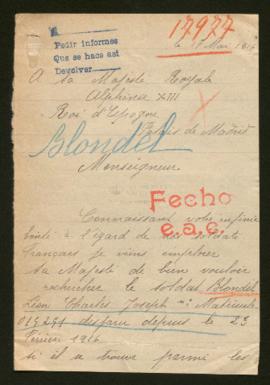 17977
Pedir informes
Que se hace así
Devolver
le 1 Mai 1916
A sa Majesté Royale
Alphonse XIII
Roi d'Espagne
Palais de Madrid
Blondel
Monseigneur
Fecho
e.a.c.
Connaissant votre infinie
bonté à l'égard de nos soldats
français je viens
sa Majesté de bien vouloir
rechercher le soldat Blondel
Léon Charles Joseph n° Matricule
disparu depuis le 23
Février 1916
si il a trouvé parmi les